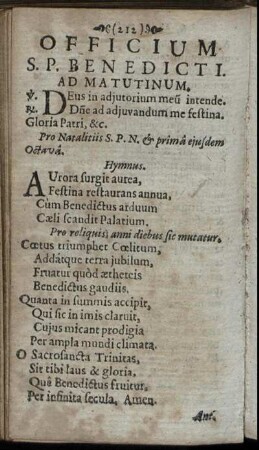 (212)
OFFICIUM
S. P. BENEDICTI.
AD MATUTINUM.
℣. DEus in adjutorium meũ intende.
℟. Dñe ad adjuvandum me festina.
Gloria Patri, &c.
Pro Natalitiis S. P. N. & primâ ejusdem
Octavâ.
Hymnus.
AUrora surgit aurea,
Festina restaurans annua,
Cùm Benedictus arduum
Cæli scandit Palatium.
Pro reliquis anni diebus sic mutatur.
Cœtus triumphet Cœlitum,
Addátque terra jubilum,
Fruatur quòd æthereis
Benedictus gaudiis.
Quanta in summis accipit,
Qui sic in imis claruit,
Cujus micant prodigia
Per ampla mundi climata.
O Sacrosancta Trinitas,
Sit tibi laus & gloria,
Quâ Benedictus fruitur,
Per infinita secula, Amen.
Ant.